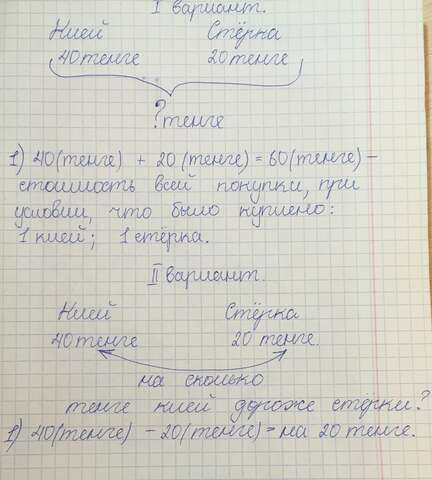 I вариант.
Клей Стёрка
40 тенге 20 тенге
? тенге
1) 40(тенге) + 20 (тенге) = 60(тенге) –
стоимость всей покупки, при
условии, что было куплено:
1 клей; 1 стёрка.
II вариант.
Клей Стёрка
40 тенге 20 тенге.
на сколько
тенге клей дороже стёрки?
1) 40(тенге) – 20(тенге) = на 20 тенге.